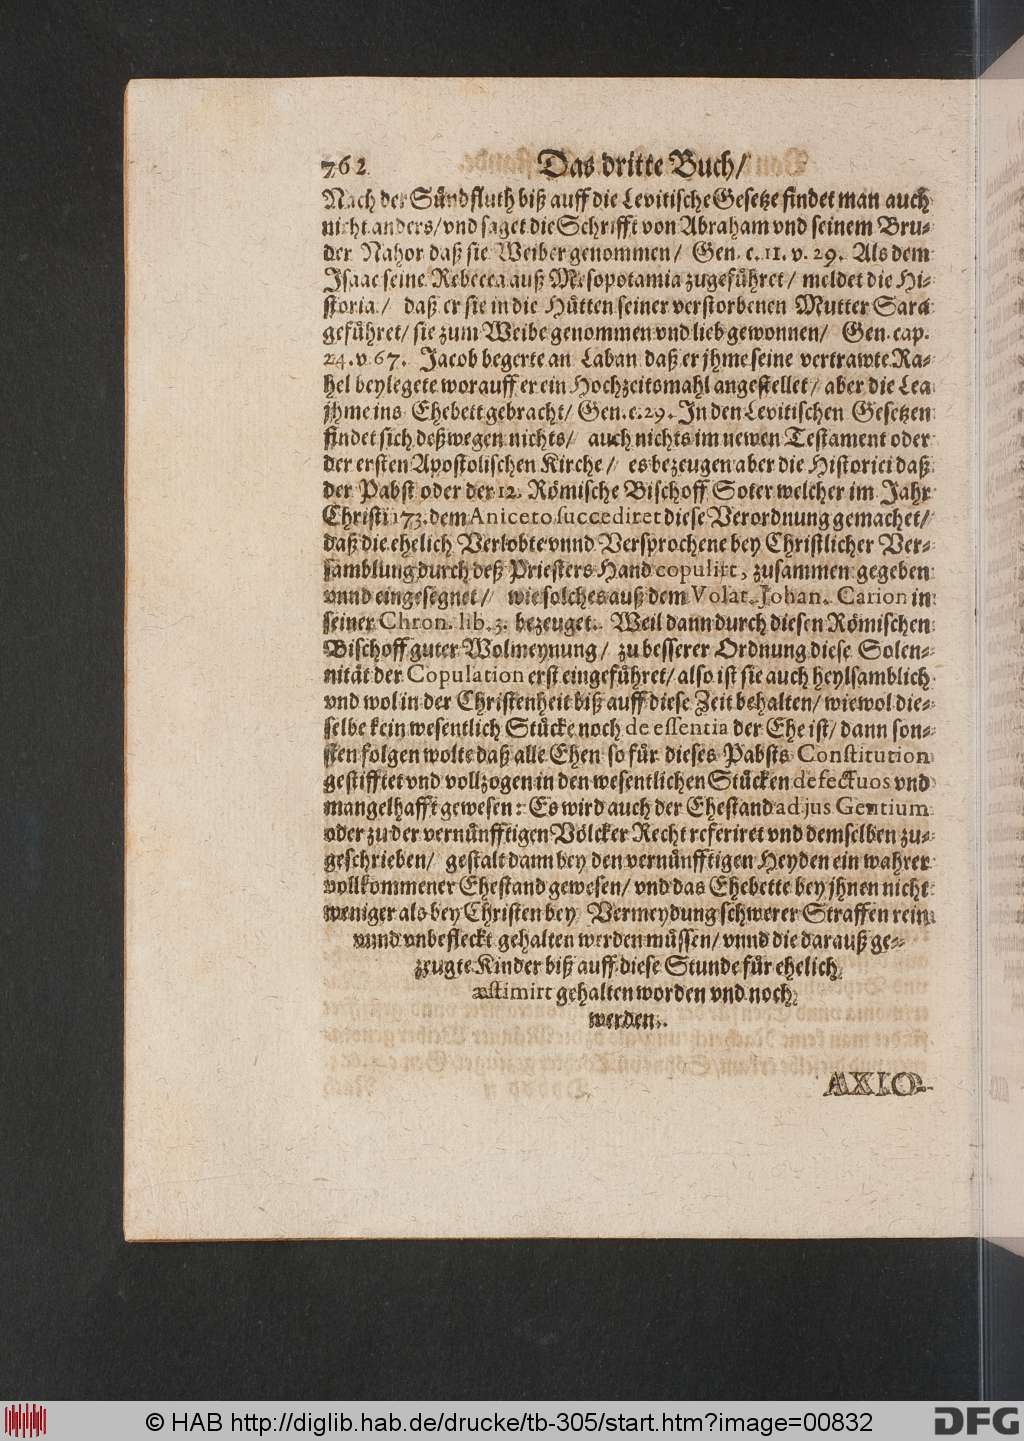 762 Das dritte Buch/
Nach der Sündfluth biß auff die Levitische Gesetze findet man auch
nicht anders/ vnd saget die Schrifft von Abraham vnd seinem Bru-
der Nahor daß sie Weiber genommen/ Gen. c. 11. v. 29. Als dem
Isaac seine Rebecca auß Mesopotamia zugeführet/ meldet die Hi-
storia/ daß er sie in die Hütten seiner verstorbenen Mutter Sara
geführet/ sie zum Weibe genommen vnd lieb gewonnen/ Gen. cap.
24. v 67. Jacob begerte an Laban daß er jhme seine vertrawte Ra-
hel beylegete worauff er ein Hochzeitsmahl angestellet/ aber die Lea
jhme ins Ehebett gebracht/ Gen. c. 29. In den Levitischen Gesetzen
findet sich deßwegen nichts/ auch nichts im newen Testament oder
der ersten Apostolischen Kirche/ es bezeugen aber die Historici daß
der Pabst oder der 12. Römische Bischoff Soter welcher im Jahr
Christi 173. dem Aniceto succediret diese Verordnung gemachet/
daß die ehelich Verlobte vnnd Versprochene bey Christlicher Ver-
samblung durch deß Priesters Hand copulirt, zusammen gegeben
vnnd eingesegnet/ wie solches auß dem Volat. Johan. Carion in
seiner Chron. lib. 3. bezeuget. Weil dann durch diesen Römischen
Bischoff guter Wolmeynung/ zu besserer Ordnung diese Solen-
nität der Copulation erst eingeführet/ also ist sie auch heylsamblich
vnd wol in der Christenheit biß auff diese Zeit behalten/ wiewol die-
selbe kein wesentlich Stücke noch de essentia der Ehe ist/ dann son-
sten folgen wolte daß alle Ehen so für dieses Pabsts Constitution
gestifftet vnd vollzogen in den wesentlichen Stücken defectuos vnd
mangelhafft gewesen: Es wird auch der Ehestand ad jus Gentium
oder zu der vernünfftigen Völcker Recht referiret vnd demselben zu-
geschrieben/ gestalt dann bey den vernünfftigen Heyden ein wahrer
vollkommener Ehestand gewesen/ vnd das Ehebette bey jhnen nicht
weniger als bey Christen bey Vermeydung schwerer Straffen rein
vnnd vnbefleckt gehalten werden müssen/ vnnd die darauß ge-
zeugte Kinder biß auff diese Stunde für ehelich
æstimirt gehalten worden vnd noch
werden.
AXIO-
© HAB http://diglib.hab.de/drucke/tb-305/start.htm?image=00832
DFG